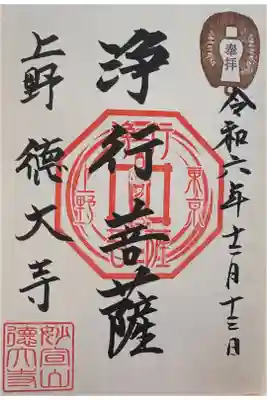 奉拝
令和六年十二月十三日
浄行菩薩
上野 徳大寺
東京
上野
妙宣山
徳大寺